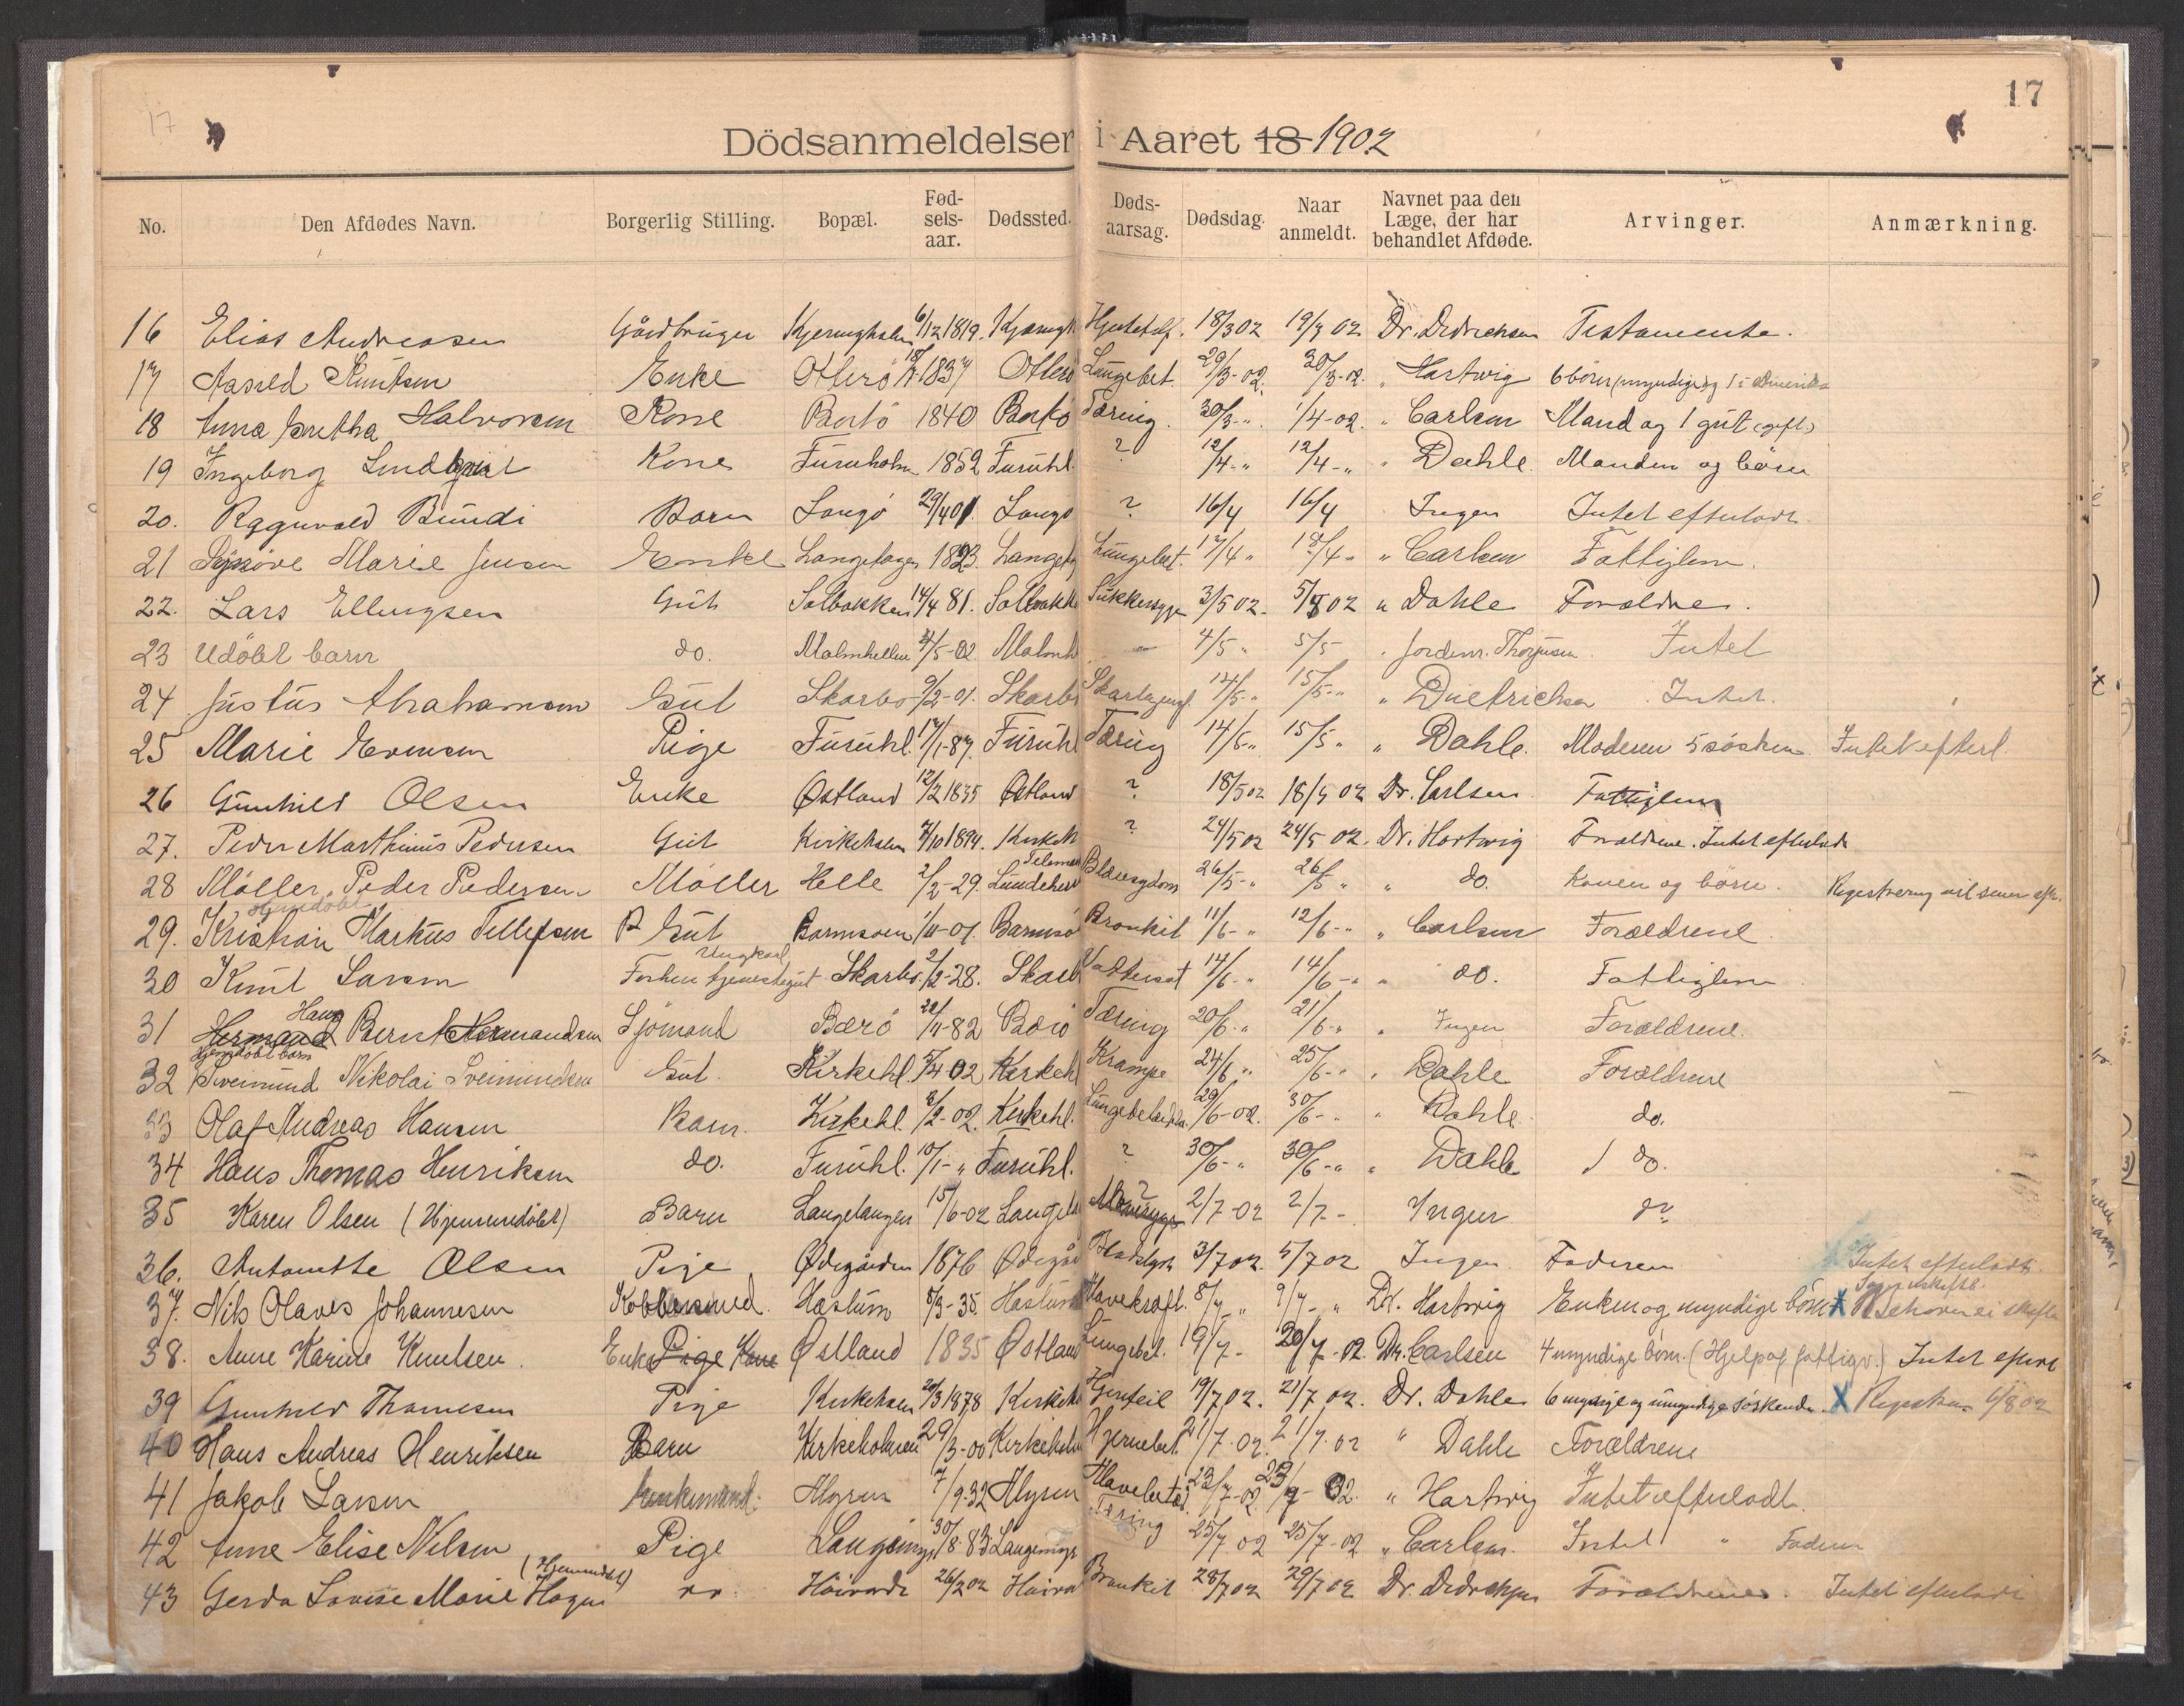 17
17
Dödsanmeldelser i Aaret 18 1902
No. Den Afdødes Navn. Borgerlig Stilling. Bopæl. Fød- sels- aar. Dødssted. Døds- aarsag. Dødsdag. Naar anmeldt. Navnet paa den Læge, der har behandlet Afdøde. Arvinger. Anmærkning.
16 Elias Andreasen Gårdbruger Kjeringholm 6/12 1819. Hjertefeil. 18/3 02 19/3 02 Dr. Dedrichsen Testamente.
17 Aasild Knutsen Enke Otterö 1837 Otterö Lungebet. 29/3-02. 30/3-02. " Hartwig 6 börn (myndige) og 1 i Amerika
18 Anna Halvorsen Kone Bertö 1840 Bertö Tæring. 30/3-". 1/4-02. " Carlsen Mand og 1 gut (gift)
19 Ingeborg Lindqvist Kone Furuholm 1852 Furuhl. ? 12/4-" 12/4-" " Dahle. Manden og börn
20. Ragnvald Bundi Barn Langö 29/4 01. Langö ? 16/4 16/4 Ingen Intet efterladt
21 Marie Jensen Enke Langetangen 1823. Langet Lungebet. 17/4 " 18/4 - " Carlsen Fattiglem.
22. Lars Ellingsen Gut Solbakken 14/4 81. Solbakk Sukkersyge 3/5 02. 5/5 02 " Dahle Forældre.
23 Udöbt barn do. Malmhellen 4/5-02 Malmh — 4/5 " 5/5 " Jordem. Thorjusen Intet
24 Justus Abrahamsen Gut Skarbo 9/2-01. Skarbo 14/5-" 15/5-" " Dietrichsen Intet.
25 Marie Evensen Pige Furuhl. 17/1-87. Furuhl Tæring 14/5-" 15/5 " " Dahle. Moderen 5 sösken Intet efterl.
26 Gunhild Olsen Enke Østland 12/2 1835 Østland ? 18/5 02 18/5 02 Dr. Carlsen Fattiglem
27. Peder Marthinius Pedersen Gut Kirkeholm 7/10 1894. Kirkeh ? 24/5 02 24/5 02. Dr. Hartwig Forældrene. Intet efterladt
28 Möller, Peder Pedersen Möller Helle 2/2-29. Lundeherred Telemar Blæresygdom 26/5-" 26/5 " " do. Konen og börn. Registrering vil senere
29. Kristian Markus Tellefsen Hjemdöbt Gut Barmsöen 1/11-01. Barmsö Bronkit 11/6-" 12/6-" " Carlsen Forældrene
30 Knut Larsen Forhen tjenestegut Ungkarl Skarbo. 2/2-28. Skarb Vattersot 14/6-" 14/6-" " do. Fattiglem
31 Hermand Hans Bernt Hermandsen Sjömand Bærö 22/11-82 Bærö Tæring 20/6-" 21/6-" " Ingen Forældrene.
32 Sveinund Nikolai Sveinundsen hjemdöbt barn Gut. Kirkehl. 5/4 02 Kirkehl Krampe 24/6 " 25/6-" " Dahle Forældrene
33 Olaf Andreas Hansen Barn. Kirkehl. 8/2-02. Kirkehl. 29/6-02. 30/6-" " Dahle. do.
34 Hans Thomas Henriksen do. Furuhl. 10/1-" Furuhl. ? 30/6-" 30/6-" " Dahle do.
35 Karen Olsen (Hjemmedöbt) Barn Langetangen 15/6-02 Langeta ? 2/7-02 2/7- Ingen do.
36. Antonette Olsen Pige Ödegården 1876 Ödegår Blodstyrt 3/7 02. 5/7 02 Ingen Faderen Intet efterladt.
37. Nils Olaves Johannesen Kobbersmed. Haslum 5/3-35. Haslum Mavekræft. 8/7 " 9/7-" Dr. Hartwig Enken og myndige börn X
38. Anne Karine Knutsen. Enke Pige Kone Østland 1835 Østland Lungebet. 19/7- 20/7-02. Dr. Carlsen 4 myndige börn. (Hjelp af fattigv.) Intet efterl
39 Gunhild Thomesen Pige Kirkeholm 20/3 1878 Kirkeho Hjertefeil 19/7 02. 21/7 02. Dr. Dahle 6 myndige og umyndige söskende. X Registrer. 6/8 02
40 Hans Andreas Henriksen Barn Kirkeholmen 29/3-00 Kirkeholm Hjernebet. 21/7.02. 21/7.02 " Dahle Forældrene
41 Jakob Larsen Enkemand. Myren 7/9-32 Myren 23/7-02 23/7-02. " Hartwig Intet efterladt.
42 Anne Elise Nilsen Pige Langemyr 30/8-83. Langemyr Tæring 25/7 02 25/7-02 " Carlsen. Intet " Faderen
43 Gerda Lovise Marie Hagen (Hjemmedöbt) do. 26/2 02 Bronkit 28/7 02 29/7 02 Dr. Forældrene. Intet efterladt